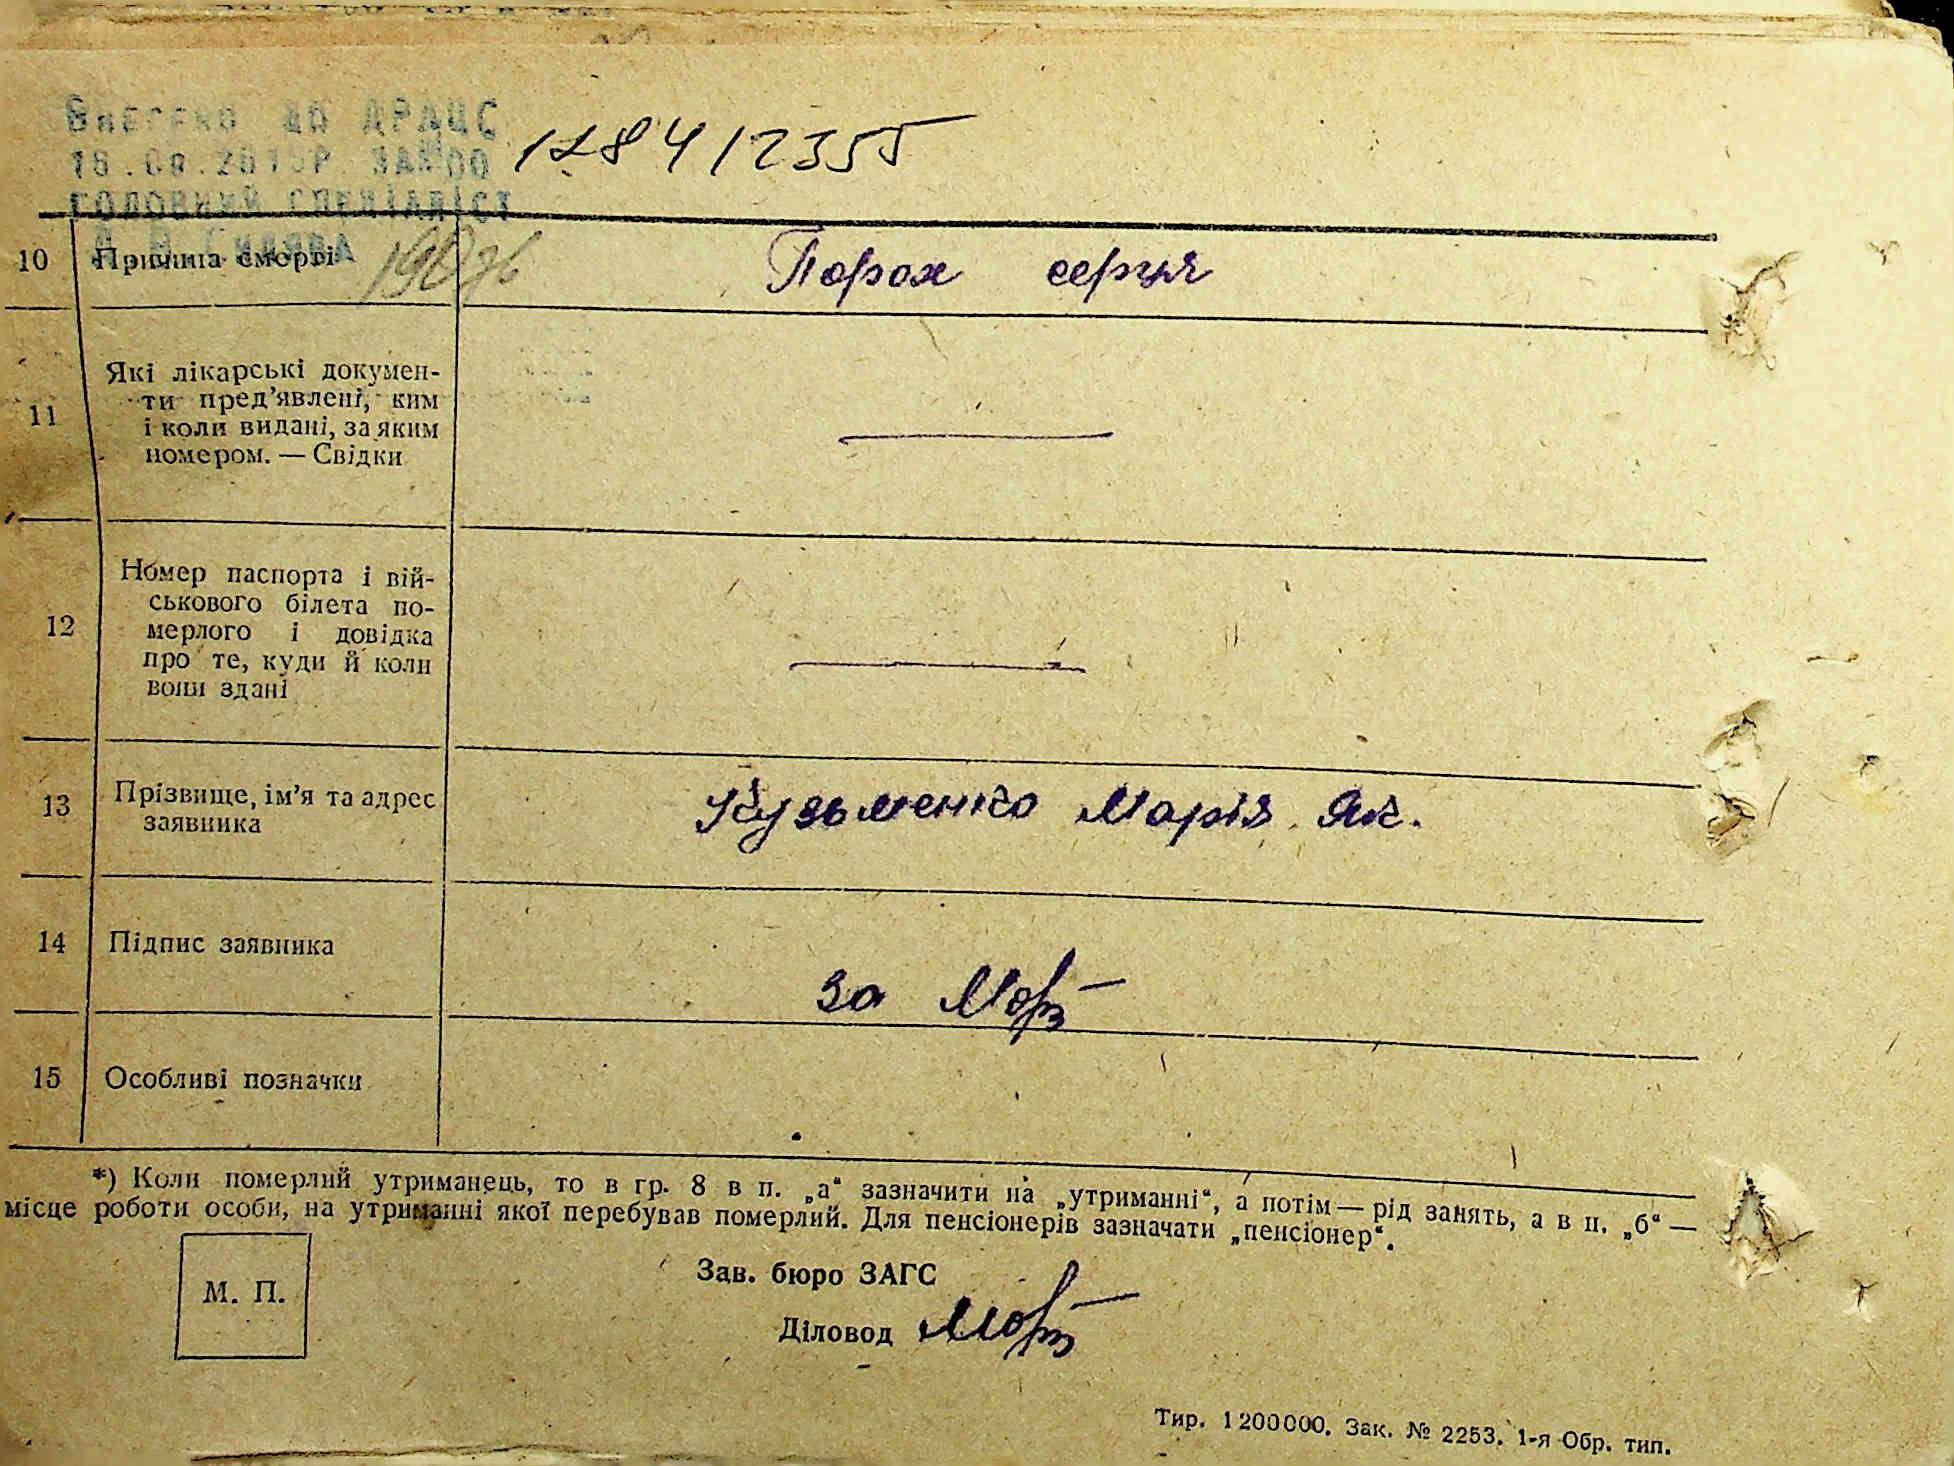 Внесено до ДРАЦС
ГОЛОВНИЙ СПЕЦІАЛІСТ
10 Причина смерті Порок серця
11 Які лікарські докумен-
ти пред'явлені, ким
і коли видані, за яким
номером. — Свідки —
12 Номер паспорта і вій-
ськового білета по-
мерлого і довідка
про те, куди й коли
вони здані —
13 Прізвище, ім'я та адрес
заявника Кузьменко Марія Як.
14 Підпис заявника за
15 Особливі позначки
*) Коли померлий утриманець, то в гр. 8 в п. „а“ зазначити на „утриманні“, а потім — рід занять, а в п. „б“ —
місце роботи особи, на утриманні якої перебував померлий. Для пенсіонерів зазначати „пенсіонер“.
М. П.
Зав. бюро ЗАГС
Діловод
Тир. 1200000. Зак. № 2253. 1-я Обр. тип.